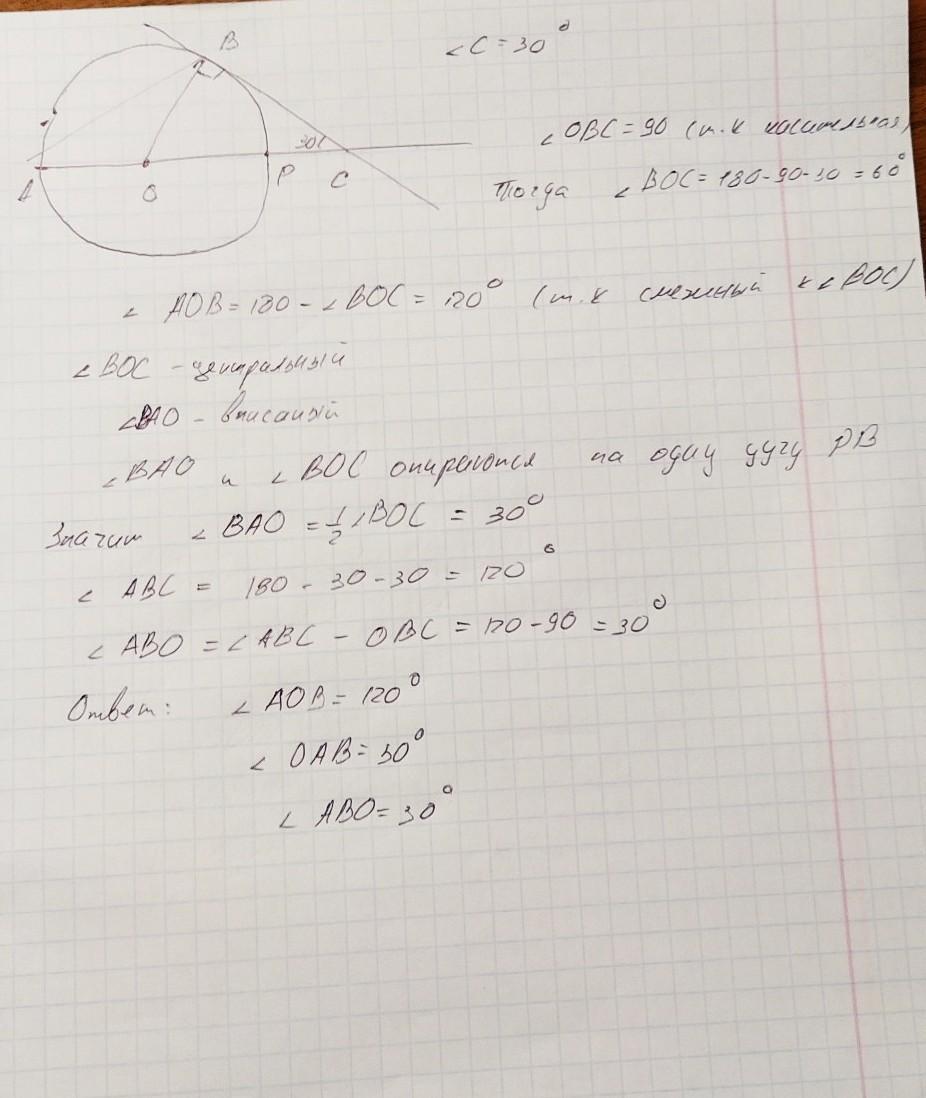 B
∠C = 30°
∠OBC = 90 (т.к касательная)
30
A
O
P
C
Тогда ∠BOC = 180-90-30 = 60°
∠AOB = 180 - ∠BOC = 120° (т.к смежный к ∠BOC)
∠BOC - центральный
∠BAO - вписаный
∠BAO и ∠BOC опираются на одну дугу PB
Значит ∠BAO = 1/2 ∠BOC = 30°
∠ABC = 180 - 30 - 30 = 120°
∠ABO = ∠ABC - OBC = 120 - 90 = 30°
Ответ: ∠AOB = 120°
∠OAB = 30°
∠ABO = 30°